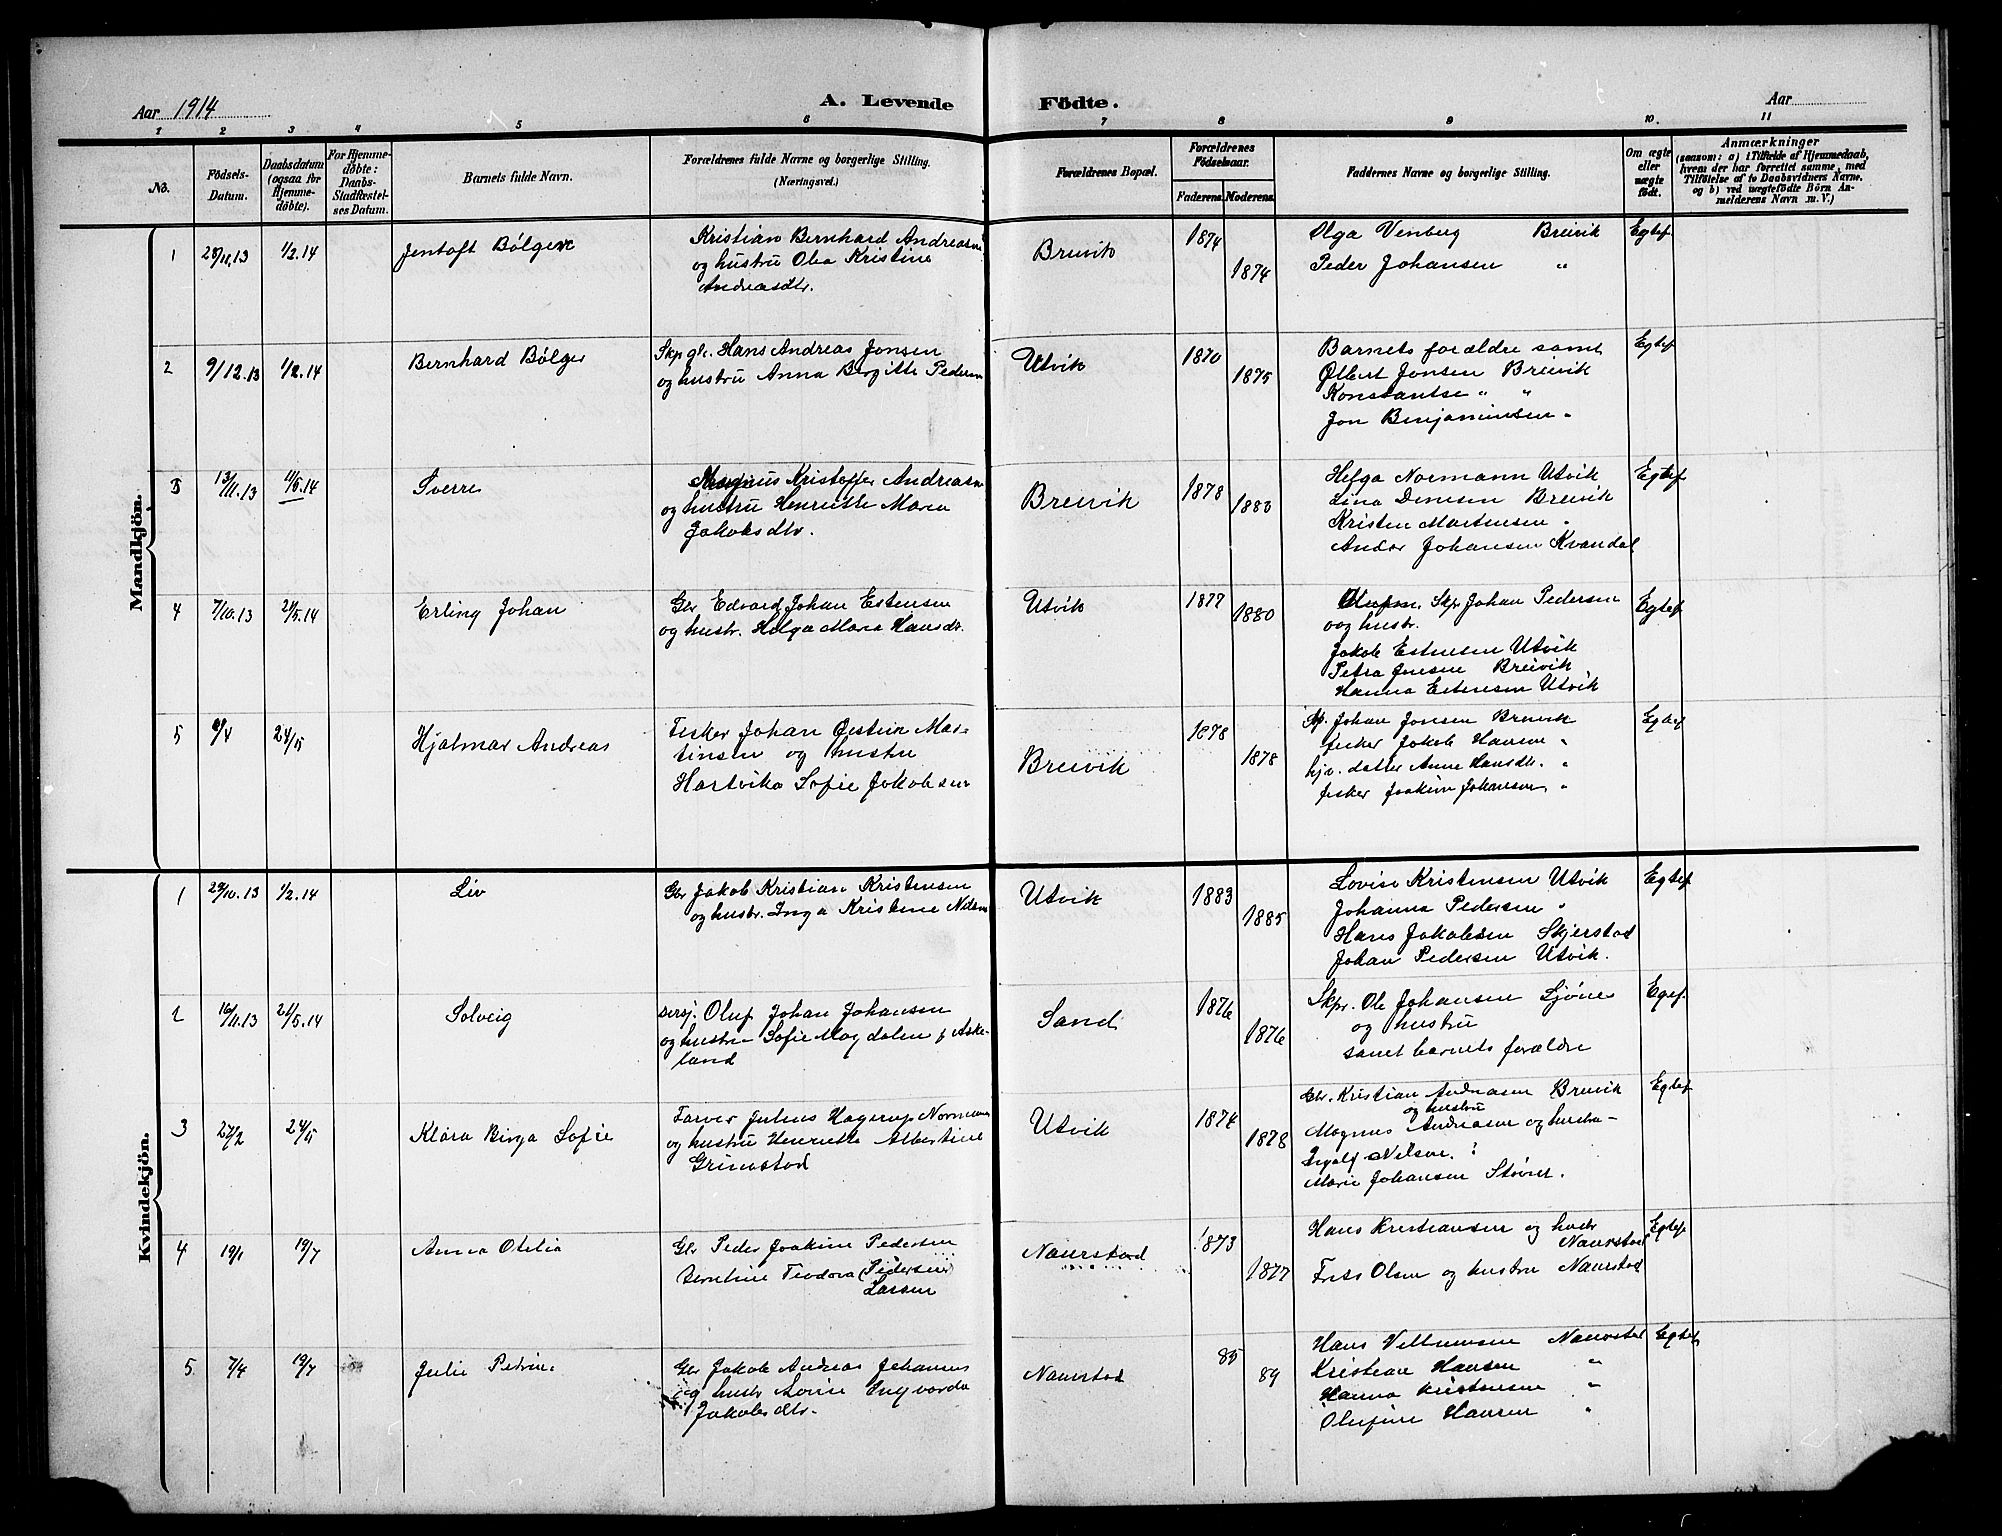 Aar 1914
A. Levende Födte.
Aar
1 2 3 4 5 6 7 8 9 10. 11
No.
Födsels-Datum.
Daabsdatum (ogsaa for Hjemme-døbte).
For Hjemme-døbte: Daabs-Stadfæstel-ses Datum.
Barnets fulde Navn.
Forældrenes fulde Navne og borgerlige Stilling. (Næringsvei.)
Forældrenes Bopæl.
Forældrenes Födselsaar.
Faderens. Moderens.
Faddernes Navne og borgerlige Stilling.
Om ægte eller uægte födt.
Anmærkninger
(saasom: a) i Tilfælde af Hjemmedaab, hvem der har forrettet samme, med Tilföielse af to Daabsvidners Navne. og b) ved uægtefödte Börn An-melderens Navn m. V.)
Mandkjön.
1 28/11.13 1/2.14 Jentoft Bølger
Kristian Bernhard Andreasen
og hustru Olea Kristine
Andreasdtr.
Breivik 1874 1874
Olga Venberg Breivik
Peder Johansen "
Egtef
2 9/12.13 1/2.14 Bernhard Bølger
Skp gl. Hans Andreas Jonsen
og hustru Anna Birgitte Pedersn
Utvik 1870 1875
Barnets forældre samt
Otbert Jonsen Breivik
Konstantse " "
Jon Benjaminsen "
Egtef
3 13/11.13 11/6.14 Sverre
Magnus Kristoffer Andreasn
og hustru Henriette Maria
Jakobsdtr.
Breivik 1878 1880
Helga Normann Utvik
Lina Densen Breivik
Kristen Martensen "
Andor Johansen Kvandal
Egtef
4 7/10.13 21/5.14 Erling Johan
Gbr Edvard Johan Estensen
og hustr. Helga Maria Hansdt.
Utvik 1877 1880
Skpr Johan Pedersen
og hustr.
Jakob Estensen Utvik
Petra Jensen Breivik
Hanna Estensen Utvik
Egtef
5 9/4 24/5 Hjalmar Andreas
Fisker Johan Østein Mar-
tinsen og hustru
Hartvika Sofie Jakobsen
Breivik 1878 1878
Johan Jonsen Breivik
fisker Jakob Hansen "
hjv. datter Anne Hansdtr. "
fisker Joakim Johansen "
Egtef
Kvindekjön.
1 29/10.13 1/2.14 Liv
Gbr Jakob Kristian Kristensen
og hustr. Inga Kristine Nilsen
Utvik 1883 1885
Lovise Kristensen Utvik
Johanna Pedersen "
Hans Jakobsen Skjerstad
Johan Pedersen Utvik.
Egtef
2 16/11.13 21/5.14 Solveig
Oluf Johan Johansen
og hustru Sofie Magdalena f. Aske-
land
Sand 1876 1876
Skpr. Ole Johansen Ljønes
og hustru
samt barnets forældre
Egtef.
3 27/2 24/5 Klara Birga Sofie
Farver Julius Hagerup Normann
og hustru Henriette Albertine
Grimstad
Utvik 1874 1878
Gbr. Kristian Andreasen Breivik
og hustru
Magnus Andreasen og hustru
Ingolf Nilsen.
Marie Johansen Støver.
Egtef
4 19/1 19/7 Anna Otelia
Gbr Peder Joakim Pedersen
Berntine Teodora (Pedersen)
Larsen
Naurstad 1873 1877
Hans Kristiansen og hustr
Naurstad
Frits Olsen og hustru Naurstad
Egtef
5 7/4 19/7 Julie Petrine
Gbr Jakob Andreas Johansen
og hustr Lovise Ingvarda
Jakobsdtr.
Naurstad 85 89
Hans Vellumsen Naurstad
Kristian Hansen "
Hanna Kristensen "
Olufine Hansen "
Egtef